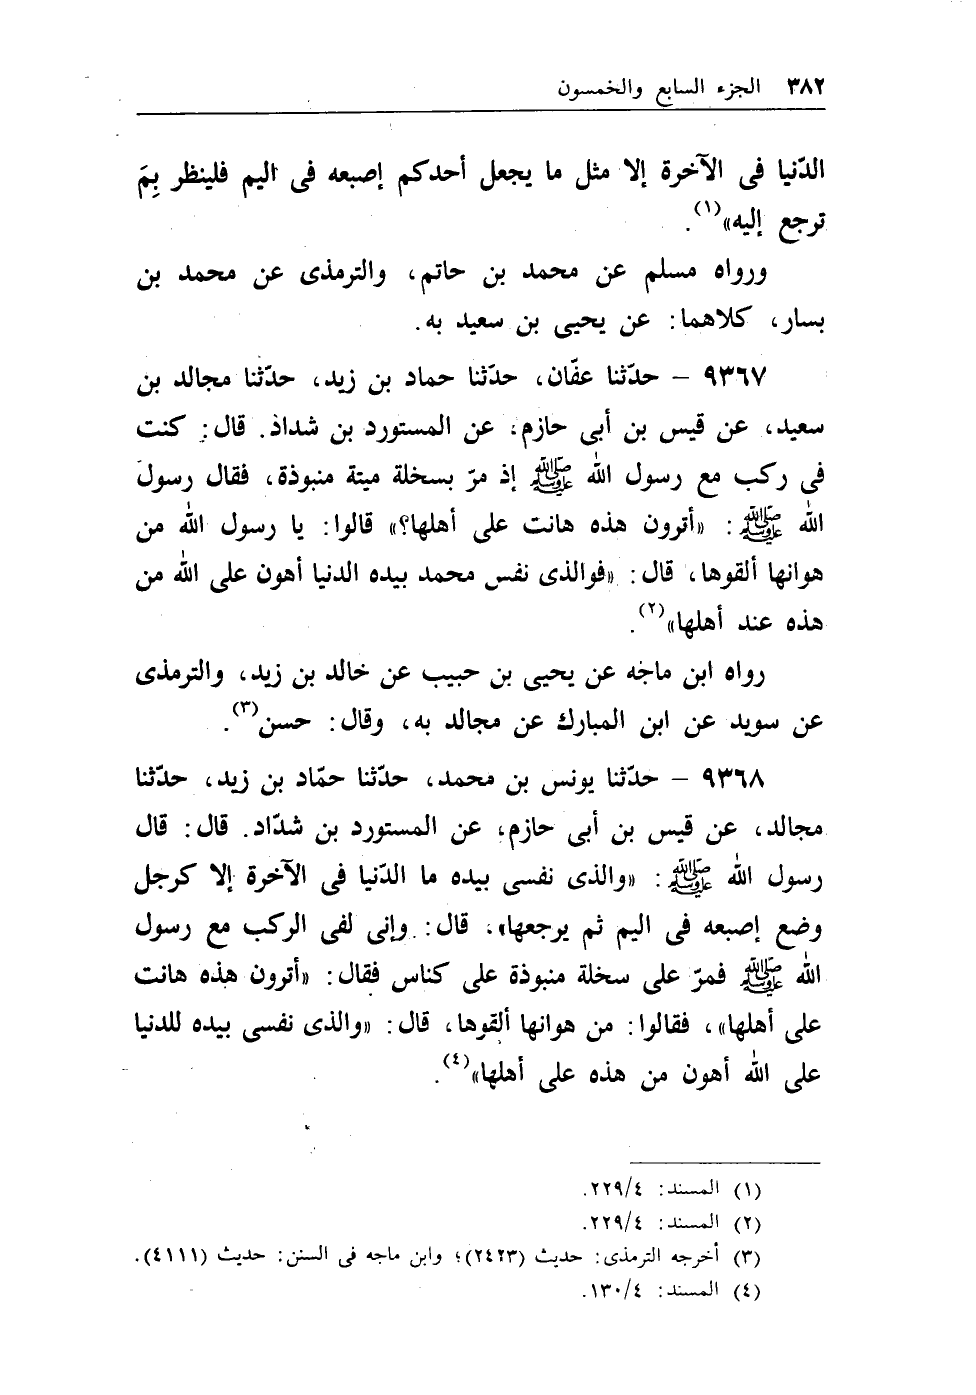 ٣٨٢ الجزء السابع والخمسون
الدّنيا فى الآخرة إلا مثل ما يجعل أحدكم إصبعه فى اليم فلينظر بِمَ
ترجع إليه»(١).
ورواه مسلم عن محمد بن حاتم، والترمذى عن محمد بن
بسار، كلاهما: عن يحيى بن سعيد به.
٩٣٦٧ – حدّثنا عفّان، حدّثنا حماد بن زيد، حدّثنا مجالد بن
سعيد، عن قيس بن أبى حازم، عن المستورد بن شداد. قال: كنت
فى ركب مع رسول الله ﷺ إذ مرّ بسخلة ميتة منبوذة، فقال رسول
الله ﷺ: «أترون هذه هانت على أهلها؟» قالوا: يا رسول الله من
هوانها ألقوها، قال: «فوالذى نفس محمد بيده الدنيا أهون على الله من
هذه عند أهلها»(٢).
رواه ابن ماجه عن يحيى بن حبيب عن خالد بن زيد، والترمذى
عن سويد عن ابن المبارك عن مجالد به، وقال: حسن(٣).
٩٣٦٨ – حدّثنا يونس بن محمد، حدّثنا حمّاد بن زيد، حدّثنا
مجالد، عن قيس بن أبى حازم، عن المستورد بن شدّاد. قال: قال
رسول الله ﷺ: «والذى نفسى بيده ما الدّنيا فى الآخرة إلا كرجل
وضع إصبعه فى اليم ثم يرجعها»، قال: وإنى لفى الركب مع رسول
الله ﷺ فمرّ على سخلة منبوذة على كناس فقال: «أترون هذه هانت
على أهلها»، فقالوا: من هوانها ألقوها، قال: «والذى نفسى بيده للدنيا
على الله أهون من هذه على أهلها»(٤).
(١) المسند: ٢٢٩/٤.
(٢) المسند: ٢٢٩/٤.
(٣) أخرجه الترمذى: حديث (٢٤٢٣)؛ وابن ماجه فى السنن: حديث (٤١١١).
(٤) المسند: ١٣٠/٤.